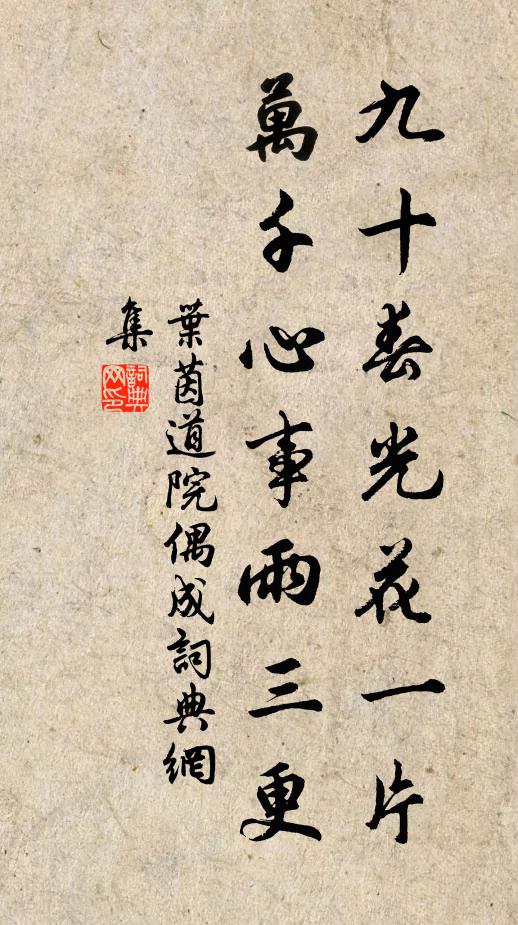 九十春光花一片
萬千心事雨三更
葉茵道院偶成詞典網
集
詞典網印